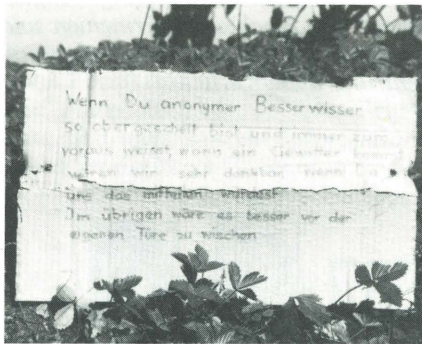 Wenn Du anonymer Besserwisser
so obergescheit bist und immer zum
voraus weisst, wann ein Gewitter kommt
wären wir sehr dankbar, wenn Du
uns das mitteilen würdest
Im übrigen wäre es besser vor der
eigenen Türe zu wischen